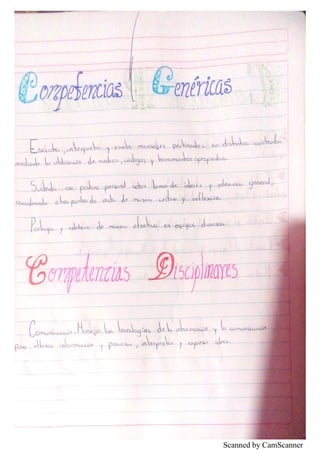 Competencias Genéricas
Escucha, interpreta y emite mensajes pertinentes en distintos contextos
mediante la utilización de medios, códigos y herramientas apropiados.
Sustenta una postura personal sobre temas de interés y relevancia general,
considerando otros puntos de vista de manera crítica y reflexiva.
Participa y colabora de manera efectiva en equipos diversos.
Competencias Disciplinares
Comunicación. Maneja las tecnologías de la información y la comunicación
para obtener información y procesar, interpretar y expresar ideas.
Scanned by CamScanner